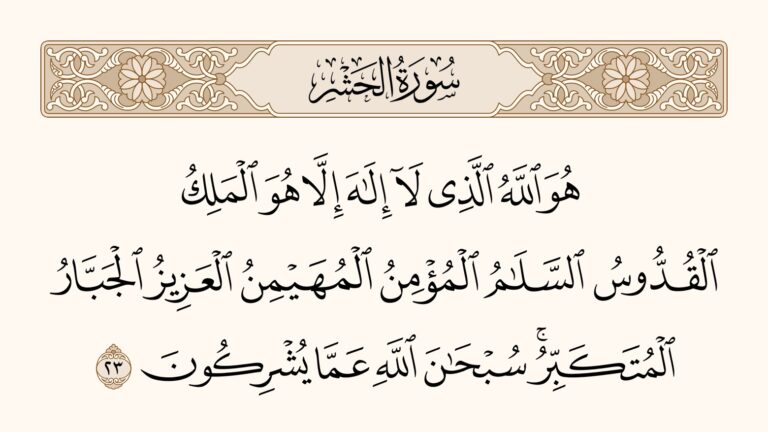 سُورَةُ الحَشْرِ
هُوَ ٱللَّهُ ٱلَّذِى لَآ إِلَـٰهَ إِلَّا هُوَ ٱلْمَلِكُ
ٱلْقُدُّوسُ ٱلسَّلَـٰمُ ٱلْمُؤْمِنُ ٱلْمُهَيْمِنُ ٱلْعَزِيزُ ٱلْجَبَّارُ
ٱلْمُتَكَبِّرُ ۚ سُبْحَـٰنَ ٱللَّهِ عَمَّا يُشْرِكُونَ ٢٣